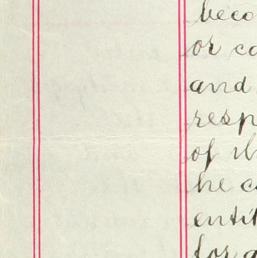 beco
or co
and
resp
of th
he c
entit
for a